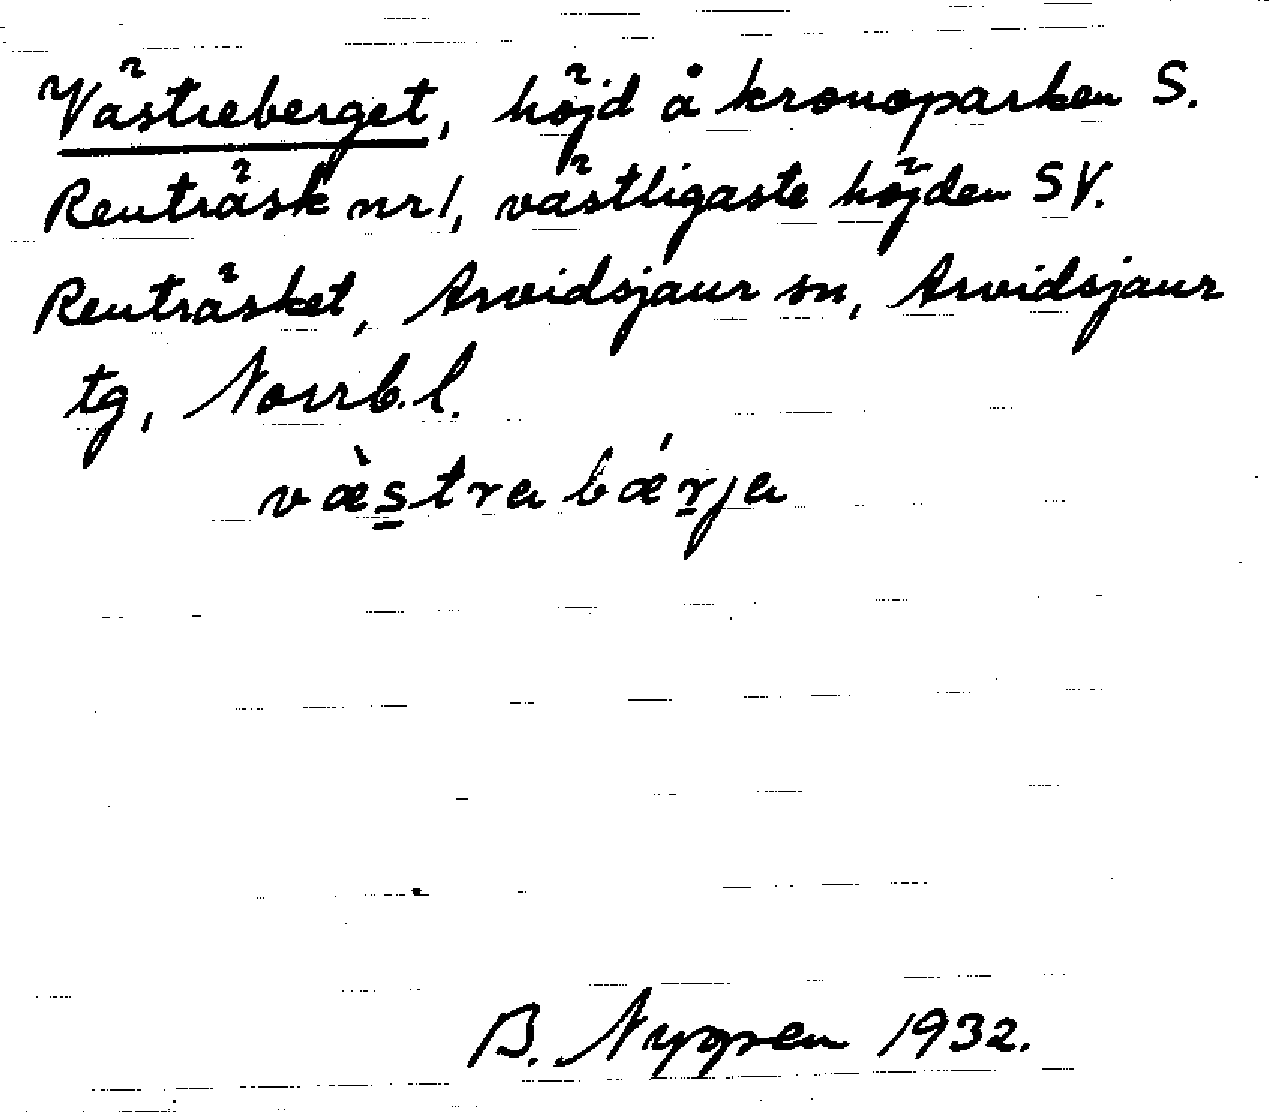 Västreberget, höjd å kronoparken S.
Renträsk nr 1, västligaste höjden SV.
Renträsket, Arvidsjaur sn, Arvidsjaur
tg, Norrb.l.
væ̀s̲trabǽr̲ja
B. Nygren 1932.